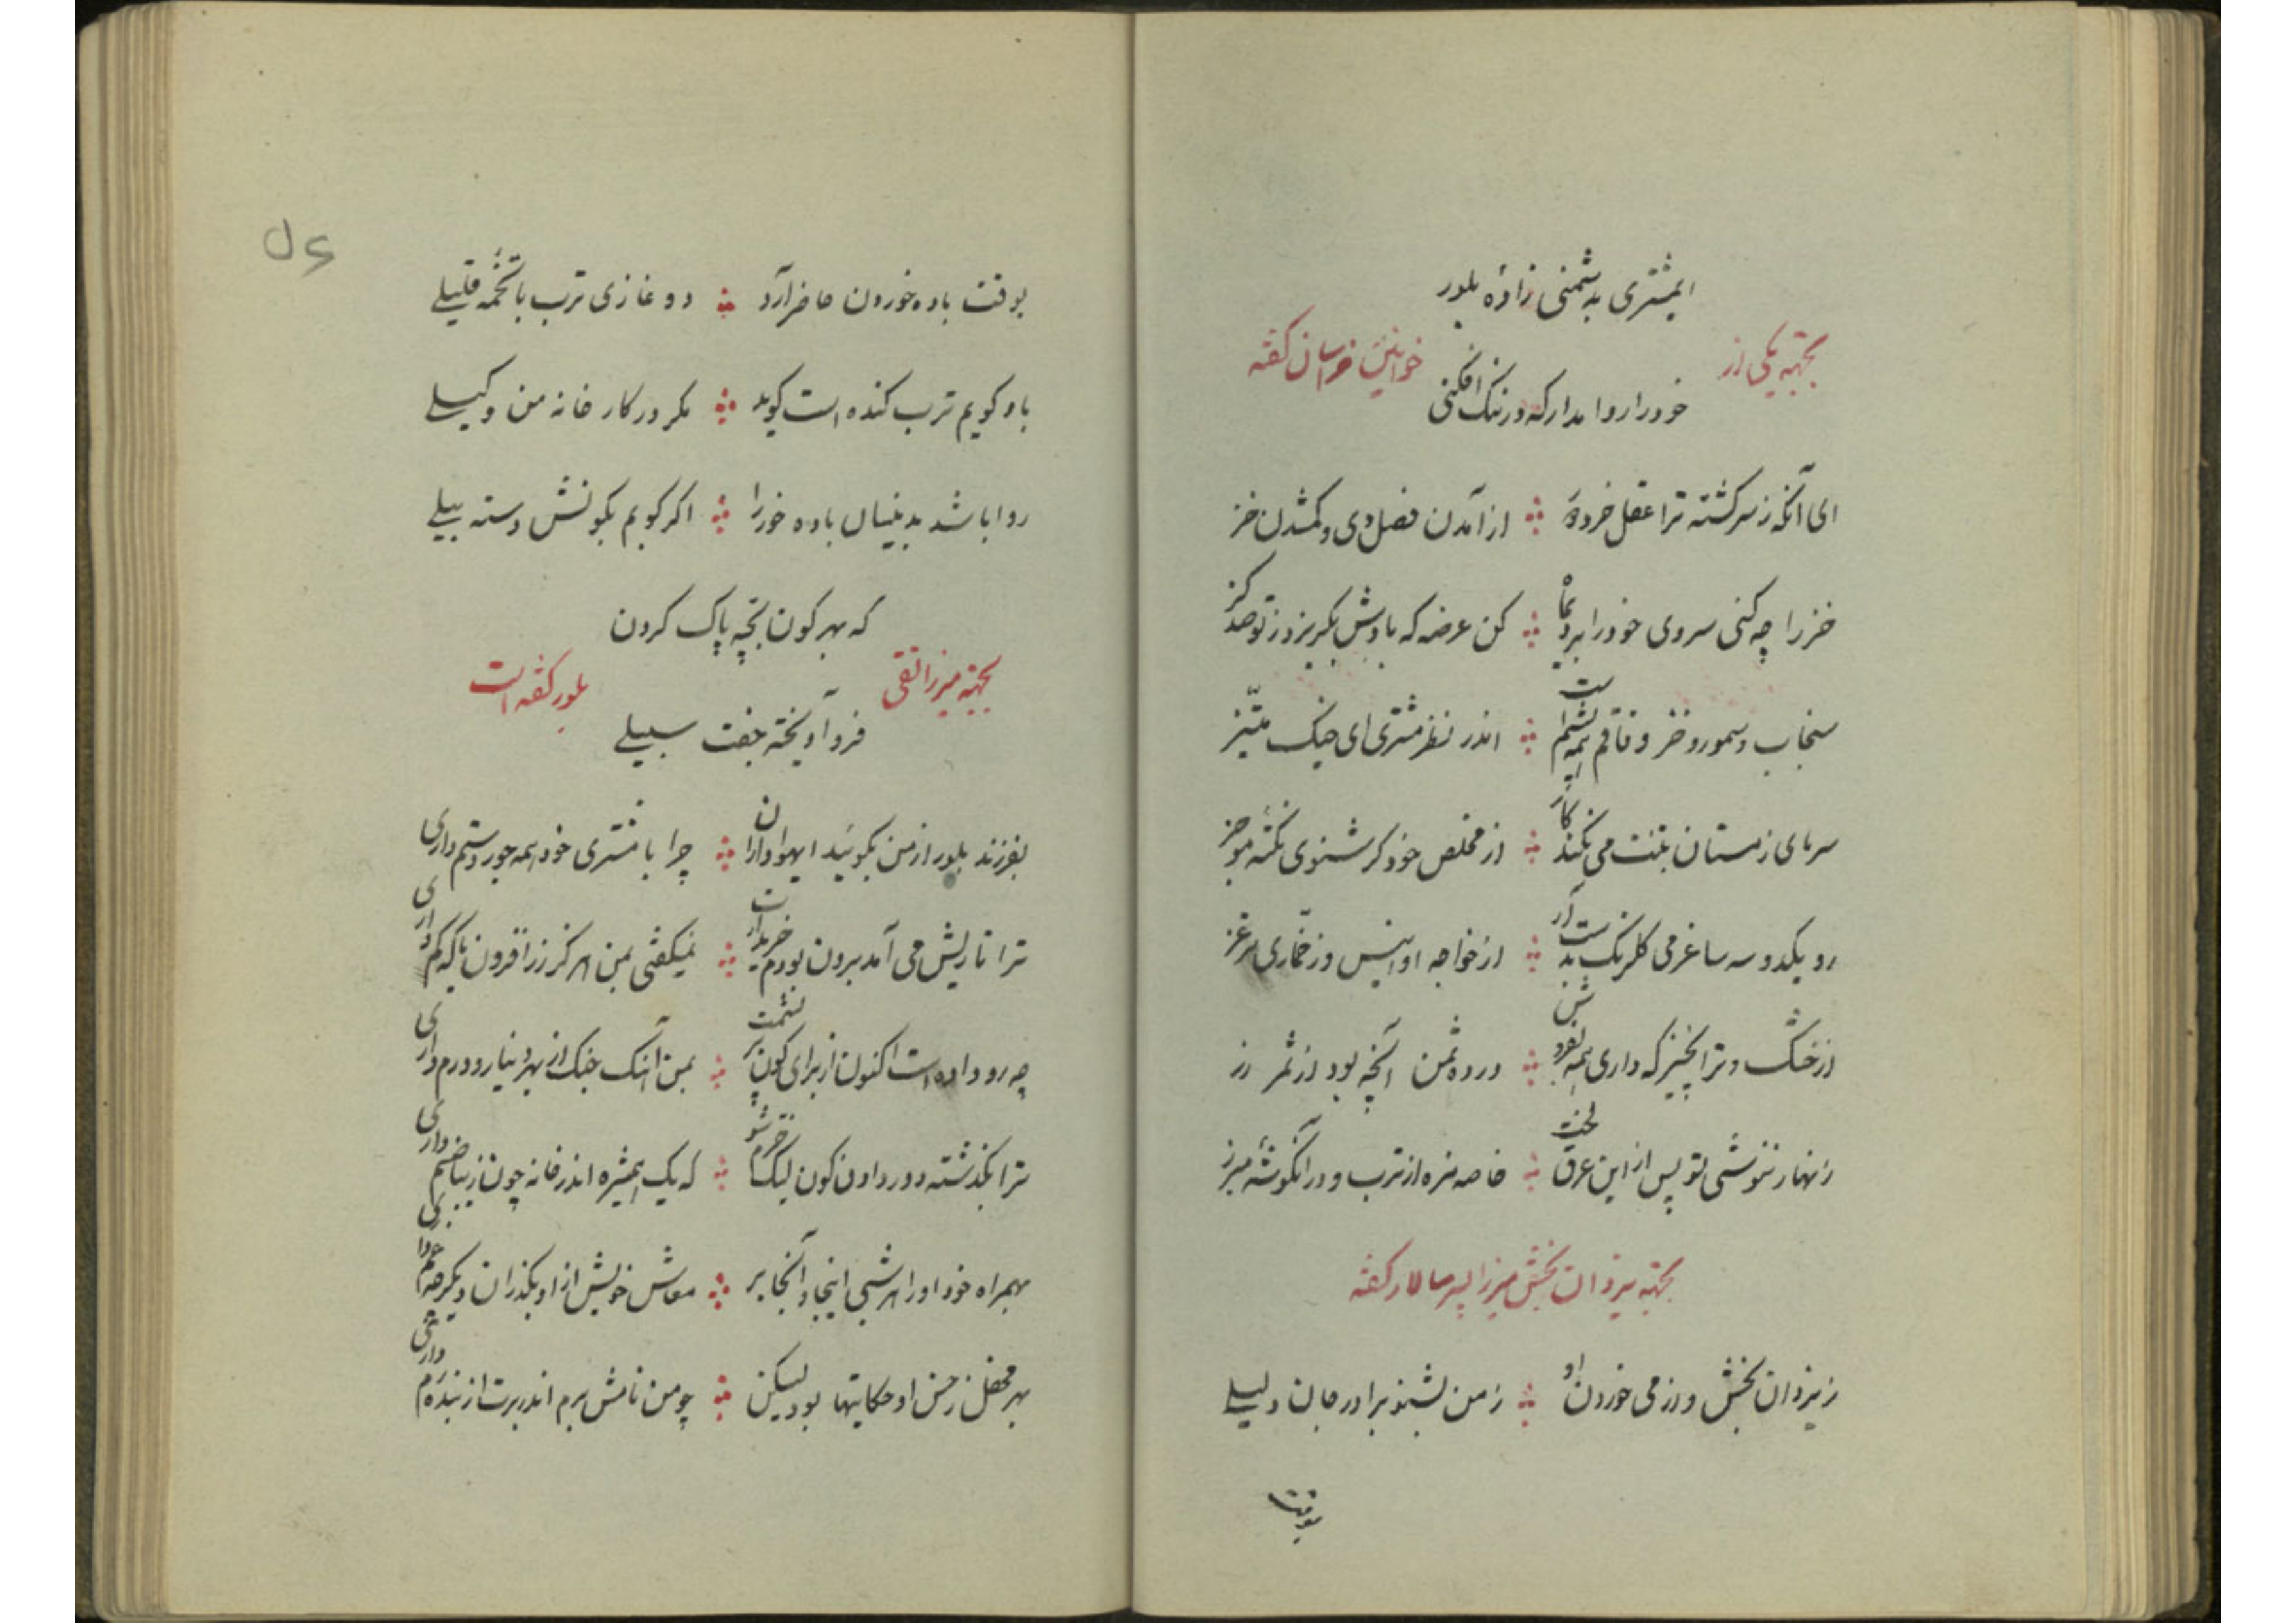 ایمشتری بدشمنی زادهٔ بلور
بجهته یکی از خوانین خراسان گفته
خود را روا مدار که در ننگ افکنی
ای آنکه ز سر گشته ترا عقل خرد از آمدن فصل دی و گمشدن خز
خز را چه کنی سروی خود را ببر کن عرضه که بادش بگریزد ز تو صد گز
سنجاب و سمور و خز و قاقم همه پشم است اندر نظر مشتری ای جنگ
سرمای زمستان بتنت می نکند کار از مخلص خود گر شنوی نکتهٔ موجز
رو یکدو سه ساغر می گلرنگ بدست آر از خواجه اوانیس وز خماری
از خشک و تر آنچیز که داری همه بفروش در ده ثمن آنچه بود از ثمر رز
زنهار ننوشی تو پس از این عرق لخت خاصه مزه از ترب و در آنگوشهٔ مبرز
بجهته یزدان بخش میرزا پسر سالار گفته
ز یزدان بخش و از می خوردن او ز من بشنو برادر جان دلیلی
بوقت
بوقت باده خوردن حاضر آرد دو غازی ترب با تخمه قلیلی
باو گویم ترب گنده است گوید مگر در کار خانه من وکیلی
روا باشد بدینسان باده خور را اگر گویم بکونش دسته بیلی
که بهر کون بچه پاک کردن
بجهته میرزا تقی بلور گفته است
فرو آویخته جفت سبیلی
بفرزند بلور از من بگوئید ایهواداران چرا با مشتری خود همه جور و ستم داری
ترا تا ریش می آمد برون بودم خریدارت نمیگفتی بمن هرگز زر افزون یا که کم داری
چه رو داده است اکنون از برای کون پر پشمت بمن آهنگ جنگ از بهر دینار و درم داری
ترا بگذشته دور دادن کون لیک خرم شو که یک همشیره اندر خانه چون زیبا صنم داری
بهمراه خود او را هر شبی اینجا و آنجا بر معاش خویش از او بگذران دیگر چه غم داری
بهر محفل ز حسن او حکایتها بود لیکن چو من نامش برم اندر برت از بنده رم داری